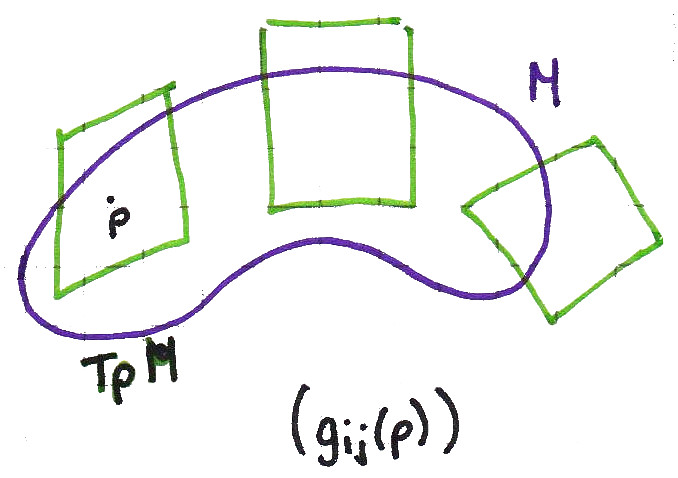 M
p
TpM
(gij(p))